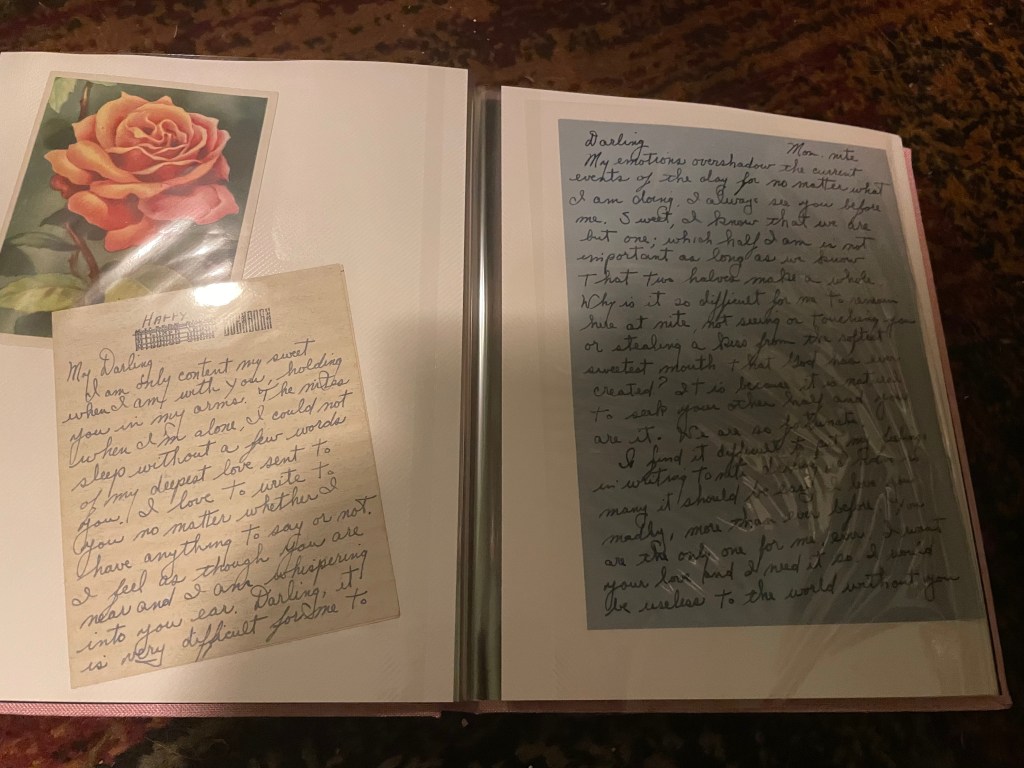 HAPPY
My Darling
I am only content my sweet
when I am with you, holding
you in my arms. The nites
when I'm alone, I could not
sleep without a few words
of my deepest love sent to
you. I love to write to
you no matter whether I
have anything to say or not.
I feel as though you are
near and I am whispering
into you ear. Darling, it
is very difficult for me to
Darling Mon. nite
My emotions overshadow the current
events of the day for no matter what
I am doing, I always see you before
me. Sweet, I know that we are
but one; which half I am is not
important as long as we know
that two halves make a whole
Why is it so difficult for me to remain
here at nite, not seeing or touching you
or stealing a kiss from the softest
sweetest mouth that God has ever
created? It is because it is natural
to seek your other half and you
are it. We are so fortunate
I find it difficult to put my feelings
in writing to nite
many it should say I love you
madly, more than ever before. You
are the only one for me. I want
your love and I need it so. I would
be useless to the world without you